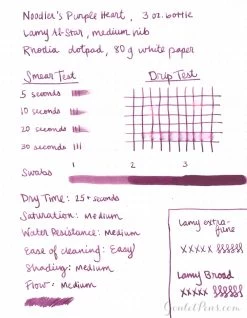 Noodler's Purple Heart, 3 oz. bottle
Lamy Al-Star, medium nib
Rhodia dotpad, 80g white paper
Smear Test
5 seconds
10 seconds
20 seconds
30 seconds
Drip Test
1 2 3
Swabs
Dry Time: 25+ seconds
Saturation: Medium
Water Resistance: Medium
Ease of cleaning: Easy!
Shading: Medium
Flow: Medium
Lamy extra-fine
xxxxx
Lamy Broad
xxxxx
GouletPens.com